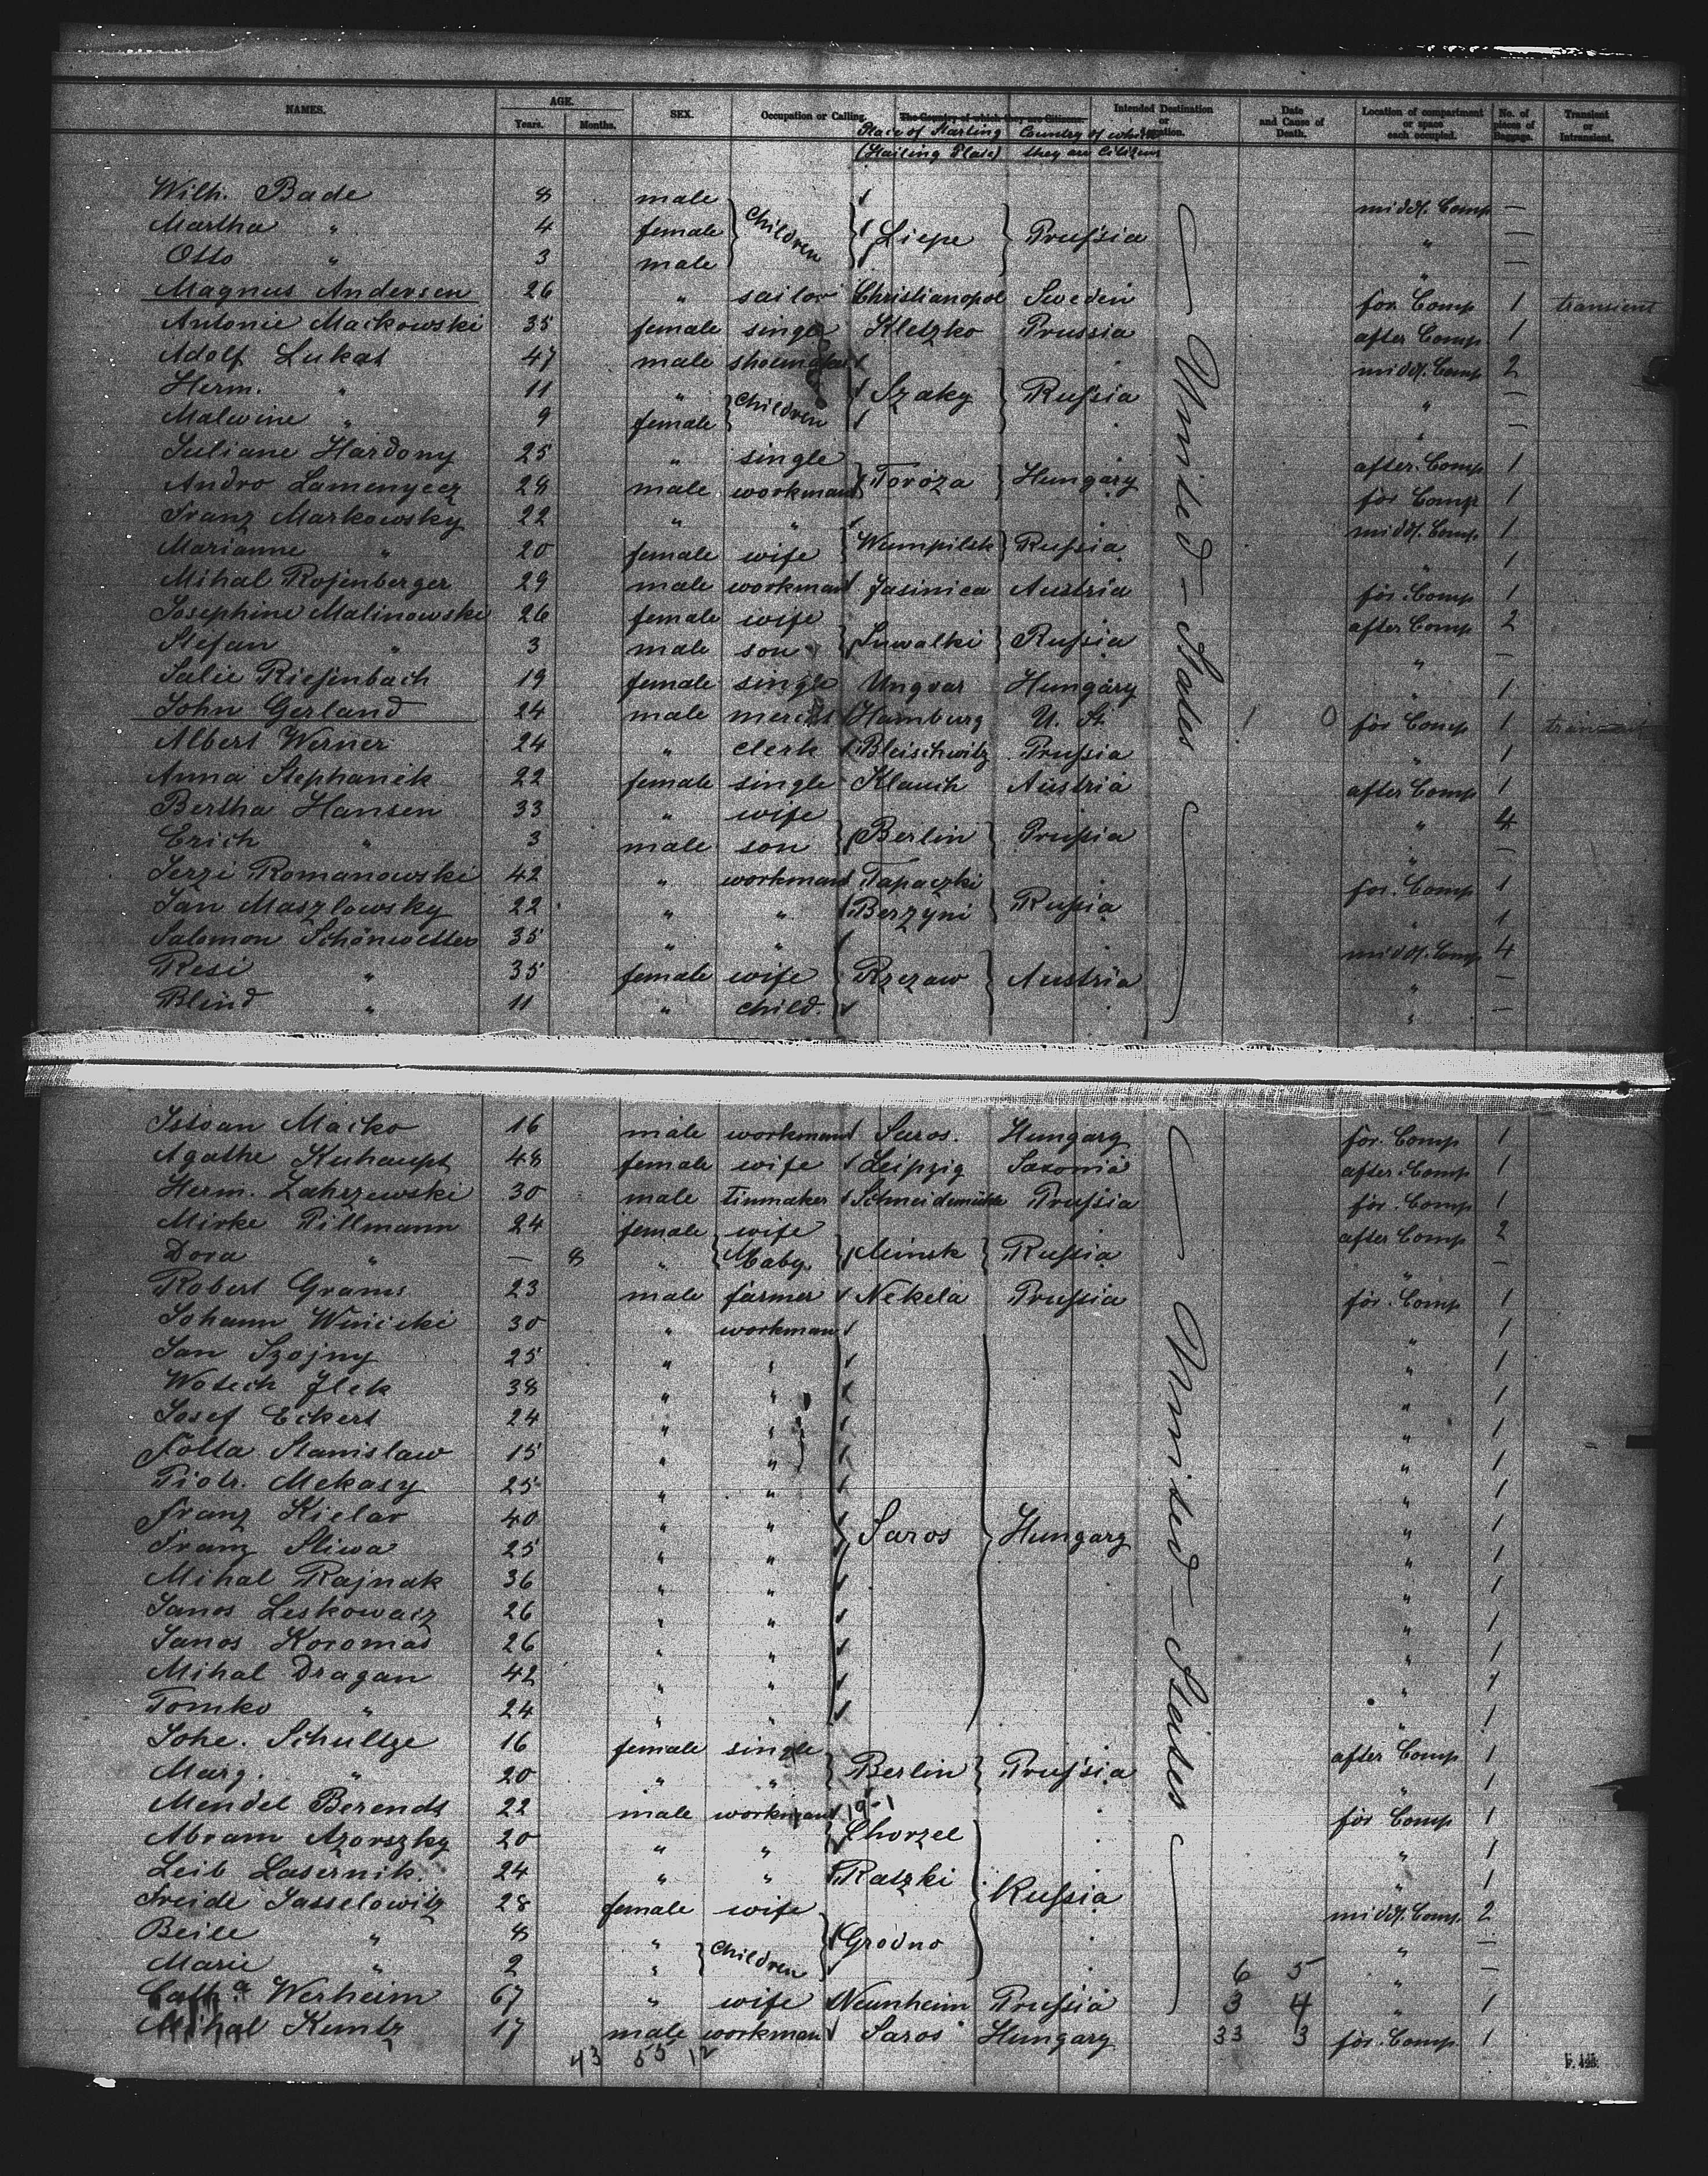 NAMES. AGE. SEX. Occupation or Calling. The Country of which they are Citizens. Intended Destination or Location. Date and Cause of Death. Location of compartment or space each occupied. No. of pieces of Baggage. Transient or Intransient.
Years. Months. Place of Starting Country of which
(Hailing Place) they are Citizens
Wilh. Bade 8 male middl. Comp —
Martha " 4 female Children Liepe Prussia " —
Otto " 3 male " —
Magnus Andersen 26 " sailor Christianopol Sweden for. Comp 1 transient
Antonie Mackowski 35 female single Kletzko Prussia after Comp. 1
Adolf Lukat 47 male middl. Comp 2
Herm. " 11 " Children Szaky Russia " —
Malwine " 9 female " —
Juliane Hardony 25 " single after. Comp 1
Andro Lamenyecz 28 male workman Toroza Hungary for Comp 1
Franz Markowsky 22 " " middl. Comp. 1
Marianne " 20 female wife Wumpilsk Russia " 1
Mihal Rosenberger 29 male workman Jasinica Austria for. Comp 1
Josephine Malinowski 26 female wife after Comp 2
Stefan " 3 male son Suwalki Russia " —
Salie Riesenbach 19 female single Ungvar Hungary " 1
John Gerland 24 male mercht Hamburg U. St. 1 0 for Comp 1 transient
Albert Werner 24 " clerk Bleischwitz Prussia " 1
Anna Stephanek 22 female single Klauch Austria after Comp 1
Bertha Hansen 33 " wife " 4
Erich " 3 male son Berlin Prussia " —
Jerzi Romanowski 42 " workman Tapaczki for. Comp 1
Jan Maszlowsky 22 " " Berzyni Russia " 1
Salomon Schönwetter 35 " " middl. Comp 4
Resi " 35 female wife Rzezaw Austria " —
Blind " 11 " child. " —
United-States
Istvan Macko 16 male workman Saros. Hungary for. Comp 1
Agathe Kuhaupt 48 female wife Leipzig Saxonia after. Comp 1
Herm. Zahrzewski 30 male Tinmaker Schneidemühle Prussia for. Comp 1
Mirke Pillmann 24 female wife after Comp 2
Dora " — 8 " baby Minsk Russia " —
Robert Grams 23 male farmer Nekela Prussia for. Comp 1
Johann Winicki 30 " workman " 1
Jan Szojny 25 " " " 1
Wotech Jlek 38 " " " 1
Josef Eckert 24 " " " 1
Folta Stanislaw 15 " " " 1
Piotr. Mekasy 25 " " " 1
Franz Kielar 40 " " Saros Hungary " 1
Franz Sliwa 25 " " " 1
Mihal Rajnak 36 " " " 1
Janos Leskowacz 26 " " " 1
Janos Koromas 26 " " " 1
Mihal Dragan 42 " " " 1
Tomko " 24 " " " 1
Johe. Schultze 16 female single after Comp 1
Marg. " 20 " " Berlin Prussia " 1
Mendel Berends 22 male workman for Comp 1
Abram Azorszky 20 " " Chorzel " 1
Leib Lasernik 24 " " Ratzki Russia " 1
Freide Jasselowitz 28 female wife middl. Comp. 2
Beile " 8 " Children Grodno " —
Marie " 2 " 6 5 " —
Cath.a Werheim 67 " wife Neunheim Prussia 3 4 " 1
Mihal Kuntz 17 male workman Saros Hungary 33 3 for. Comp. 1
43 55 12
United-States